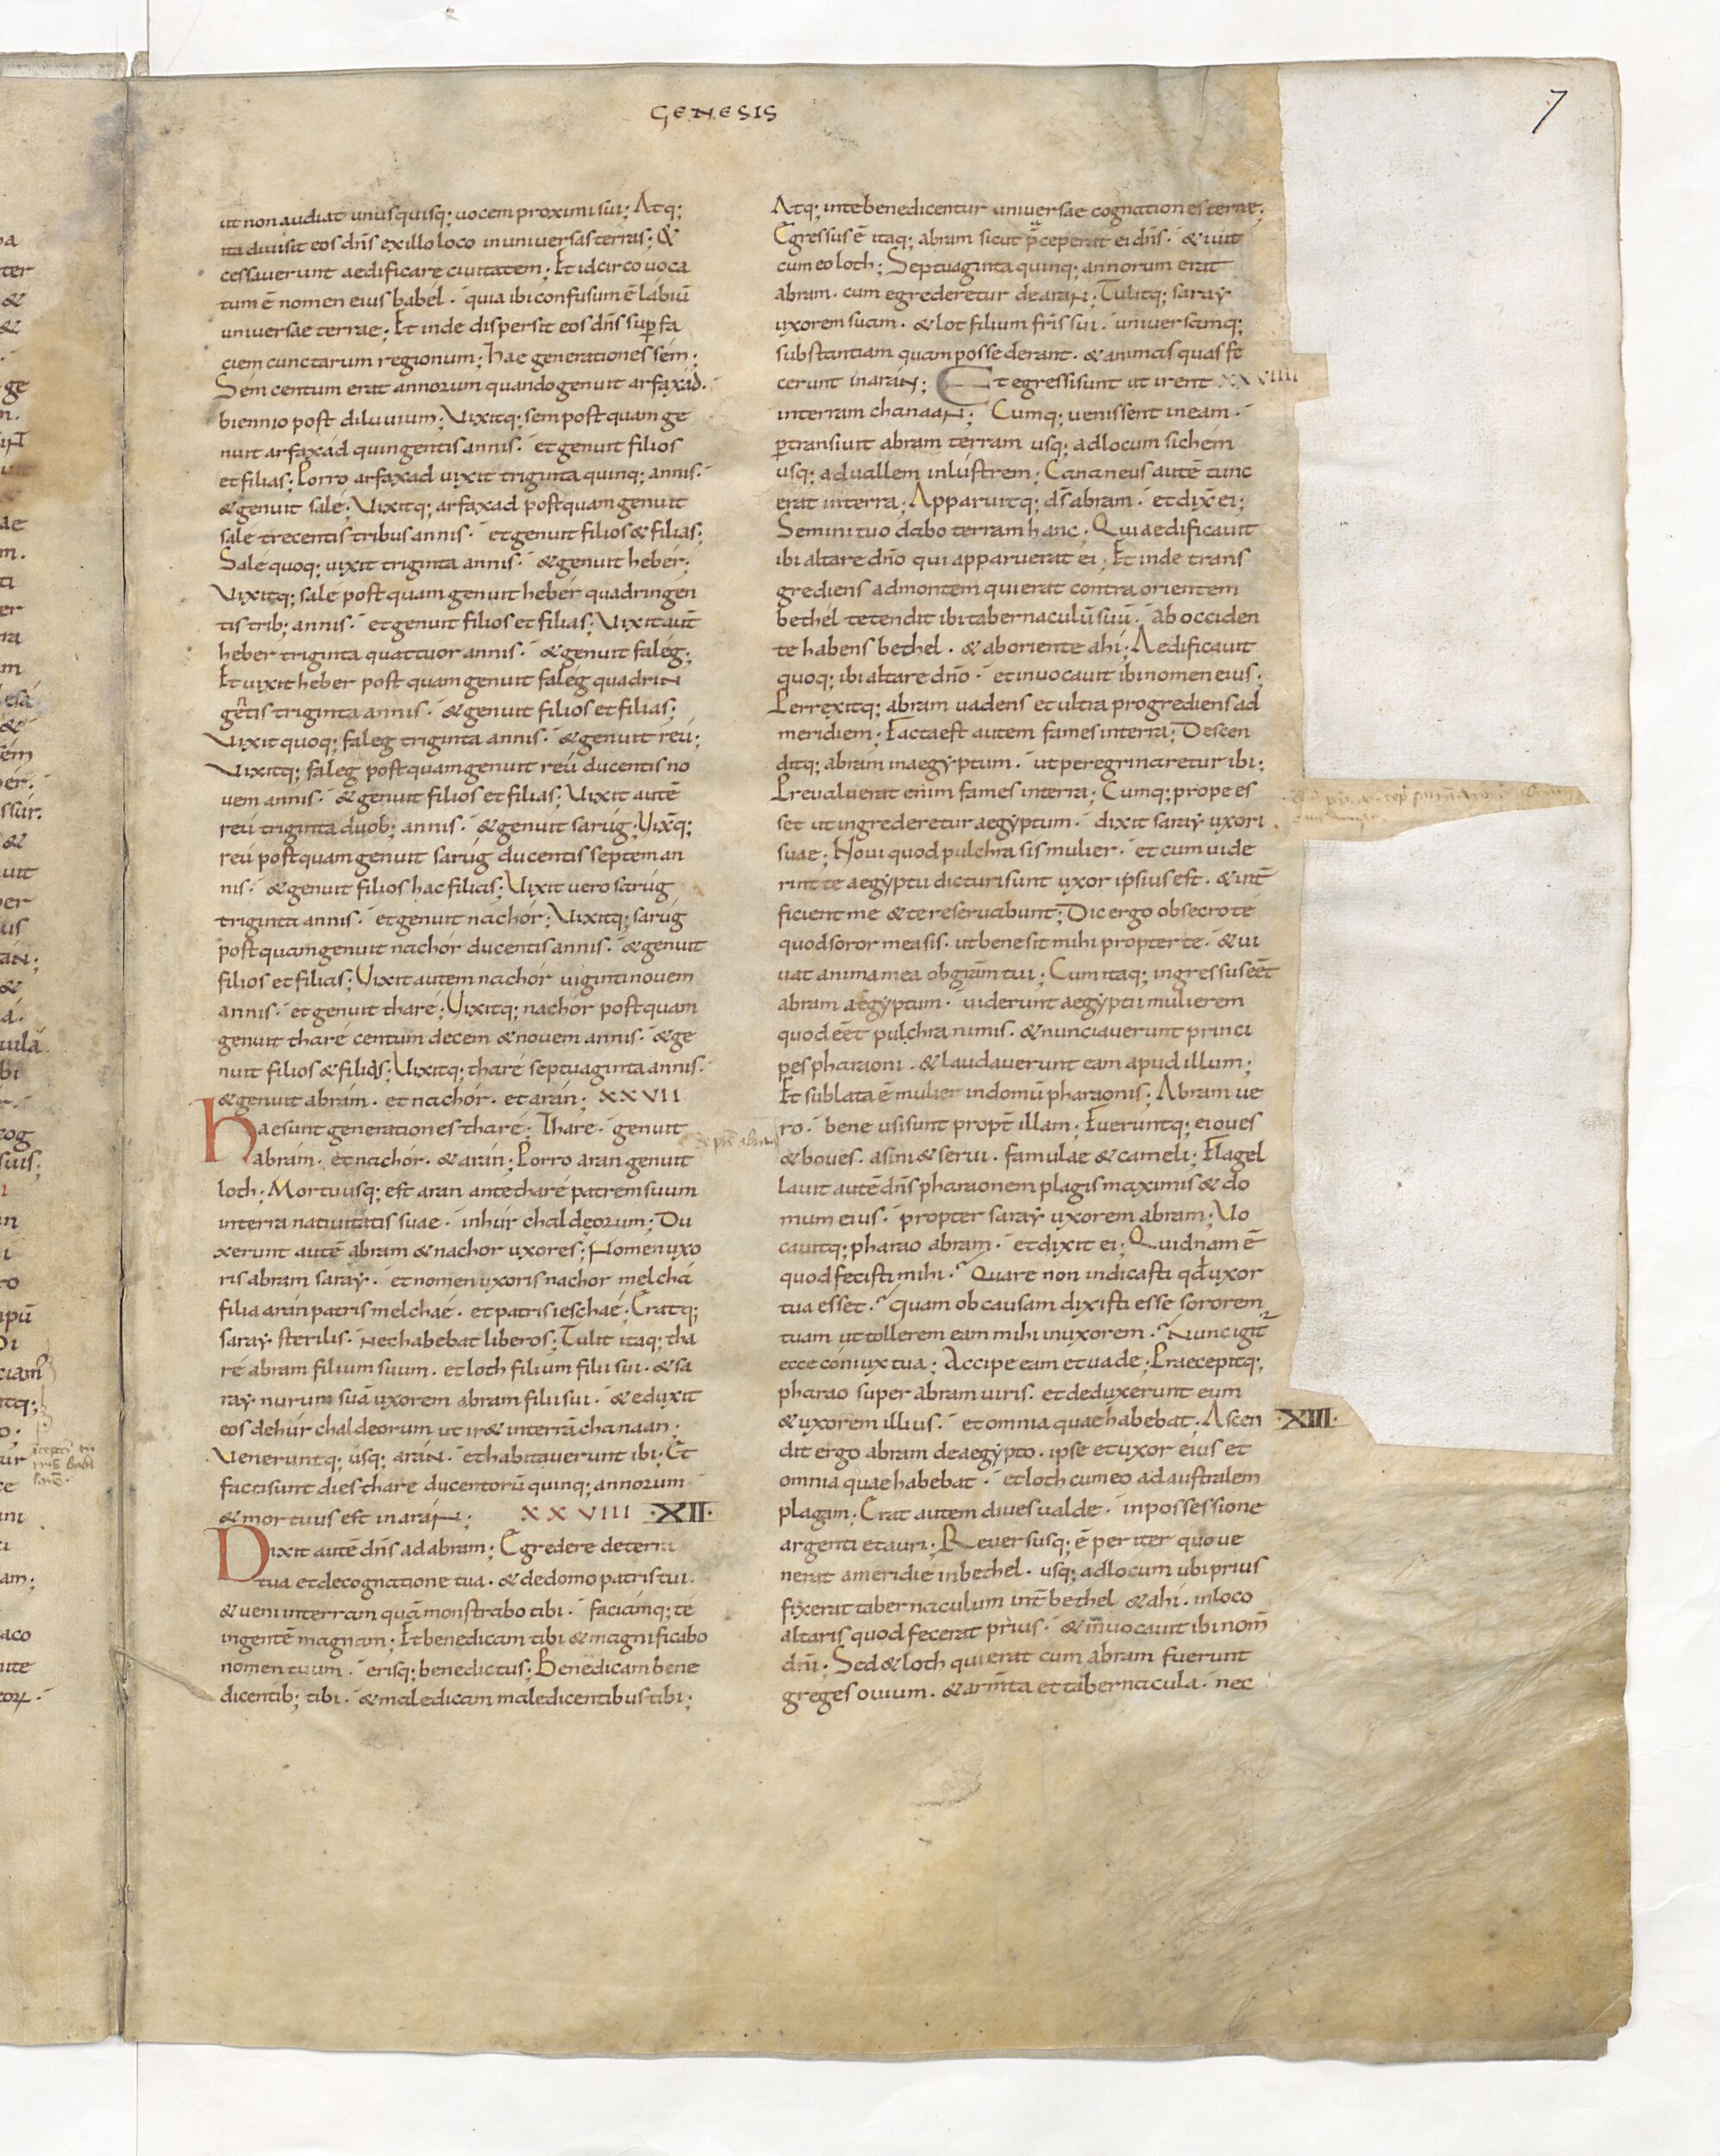 GENESIS
7
ut non audiat unusquisq; uocem proximi sui; Atq;
ita diuisit eos dn̄s ex illo loco in uniuersas terras; &
cessauerunt aedificare ciuitatem; Et idcirco uoca
tum ē nomen eius babél. quia ibi confusum ē labiū
uniuersae terrae; Et inde dispersit eos dn̄s sup fa
ciem cunctarum regionum; hae generationes sém;
Sém centum erat annorum quando genuit arfaxád.
biennio post diluuium; Vixitq; sem postquam ge
nuit arfaxád quingentis annis. et genuit filios
et filias; Porro arfaxad uixit triginta quinq; annis.
& genuit salé; Vixitq; arfaxad postquam genuit
sale trecentis tribus annis. et genuit filios & filias;
Sale quoq; uixit triginta annis. & genuit hebér;
Vixitq; sale postquam genuit hebér quadringen
tis trib; annis. et genuit filios et filias; Vixit aut̄
heber triginta quattuor annis. & genuit falég;
Et uixit heber postquam genuit falég quadrin
gentis triginta annis. & genuit filios et filias;
Vixit quoq; faleg triginta annis. & genuit reú;
Vixitq; faleg postquam genuit reú ducentis no
uem annis. & genuit filios et filias; Vixit autē
reú triginta duob; annis. & genuit sarúg; Vix̄q;
reú postquam genuit sarúg ducentis septem an
nis. & genuit filios hac filias; Vixit uero sarúg
triginta annis. et genuit nachór; Vixitq; sarúg
postquam genuit nachór ducentis annis. & genuit
filios et filias; Vixit autem nachór uiginti nouem
annis. et genuit tharé; Vixitq; nachór postquam
genuit tharé centum decem & nouem annis. & ge
nuit filios & filias; Vixitq; tharé septuaginta annis.
& genuit abrám. et nachór. et arán; XXVII
Hae sunt generationes tharé; Thare. genuit
abrám. et nachór. & arán; Porro aran genuit
loth; Mortuusq; est aran ante tharé patrem suum
in terra natiuitatis suae. in húr chaldeorum; Du
xerunt autē abram & nachor uxores; Nomen uxo
ris abram saraÿ. et nomen uxoris nachor melchá
filia arán patris melchaé. et patris ieschaé; Eratq;
saraÿ sterilis. nec habebat liberos; Tulit itaq; tha
ré abram filium suum. et loth filium filii sui. & sa
raÿ nurum suā uxorem abram filii sui. & eduxit
eos de húr chaldeorum ut ir& in terrā chanaan.
Veneruntq; usq; arán. et habitauerunt ibi; Et
facti sunt dies thare ducentorū quinq; annorum
& mortuus est in arán; XXVIII ·XII·
Dixit autē dn̄s ad abram; Egredere de terra
tua et de cognatione tua. & de domo patris tui.
& ueni in terram quā monstrabo tibi. faciámq; té
in gentē magnam; Et benedicam tibi & magnificabo
nomen tuum. erisq; benedictus; Benedicam bene
dicentib; tibi. & maledicam maledicentibus tibi;
Atq; in te benedicentur uniuersae cognationes terrae;
Egressus ē itaq; abram sicut p̄ceperat ei dn̄s. & iuit
cum eo loth; Septuaginta quinq; annorum erat
abram. cum egrederetur de aran; Tulitq; saraÿ
uxorem suam. & lot filium fr̄is sui. uniuersamq;
substantiam quam possederant. & animas quas fe
cerunt in arán; Et egressi sunt ut irent XXVIIII
in terram chanaan; Cumq; uenissent in eam.
ptransiuit abram terram usq; ad locum sichém
usq; ad uallem inlústrem; Cananeus autē tunc
erat in terra; Apparuitq; dn̄s abram. et dix̄ ei;
Semini tuo dabo terram hanc; Qui aedificauit
ibi altare dn̄o qui apparuerat ei; Et inde trans
grediens ad montem qui erat contra orientem
bethél tetendit ibi tabernaculū suū. ab occiden
te habens bethel. & ab oriente ahí; Aedificauit
quoq; ibi altare dn̄o. et inuocauit ibi nomen eius;
Perrexitq; abram uadens et ultra progrediens ad
meridiem; Facta est autem fames in terra; Descen
ditq; abrám in aegÿptum. ut peregrinaretur ibi;
Preualuerat enim fames in terra; Cumq; prope es
set ut ingrederetur aegÿptum. dixit saraÿ uxori
suae; Noui quod pulchra sis mulier. et cum uide
rint te aegÿptii dicturi sunt uxor ipsius est. & int̄
ficient me & te reseruabunt; Dic ergo obsecro té
quod soror mea sis. ut bene sit mihi propter te. & ui
uat anima mea ob gr̄am tui; Cum itaq; ingressus ēēt
abram aegÿptum. uiderunt aegÿptii mulierem
quod ēēt pulchra nimis. & nunciauerunt princi
pes pharaoni. & laudauerunt eam apud illum;
Et sublata ē mulier in domū pharaonis; Abram ue
ro. bene usi sunt propt̄ illam; Fueruntq; ei oues
& boues. asini & serui. famulae & cameli; Flagel
lauit autē dn̄s pharaonem plagis maximis & do
mum eius. propter saraÿ uxorem abram; Vo
cauitq; pharao abram. et dixit ei; Quidnam ē
quod fecisti mihi. Quare non indicasti qd̄ uxor
tua esset. Quam ob causam dixisti esse sororem
tuam ut tollerem eam mihi in uxorem. Nunc igit̄
ecce cóniux tua; Accipe eam et uade; Praecepitq;
pharao super abram uiris. et deduxerunt eum
& uxorem illius. et omnia quae habebat. Ascen ·XIII·
dit ergo abram de aegÿpto. ipse et uxor eius et
omnia quae habebat. et loth cum eo ad australem
plagam; Erat autem diues ualde. in possessione
argenti et auri; Reuersusq; ē per iter quo ue
nerat a meridie in bethel. usq; ad locum ubi prius
fixerat tabernaculum int̄ bethel & ahí. in loco
altaris quod fecerat prius. & inuocauit ibi nom̄
dn̄i; Sed & loth qui erat cum abram fuerunt
greges ouium. & arm̄ta et tabernacula. nec